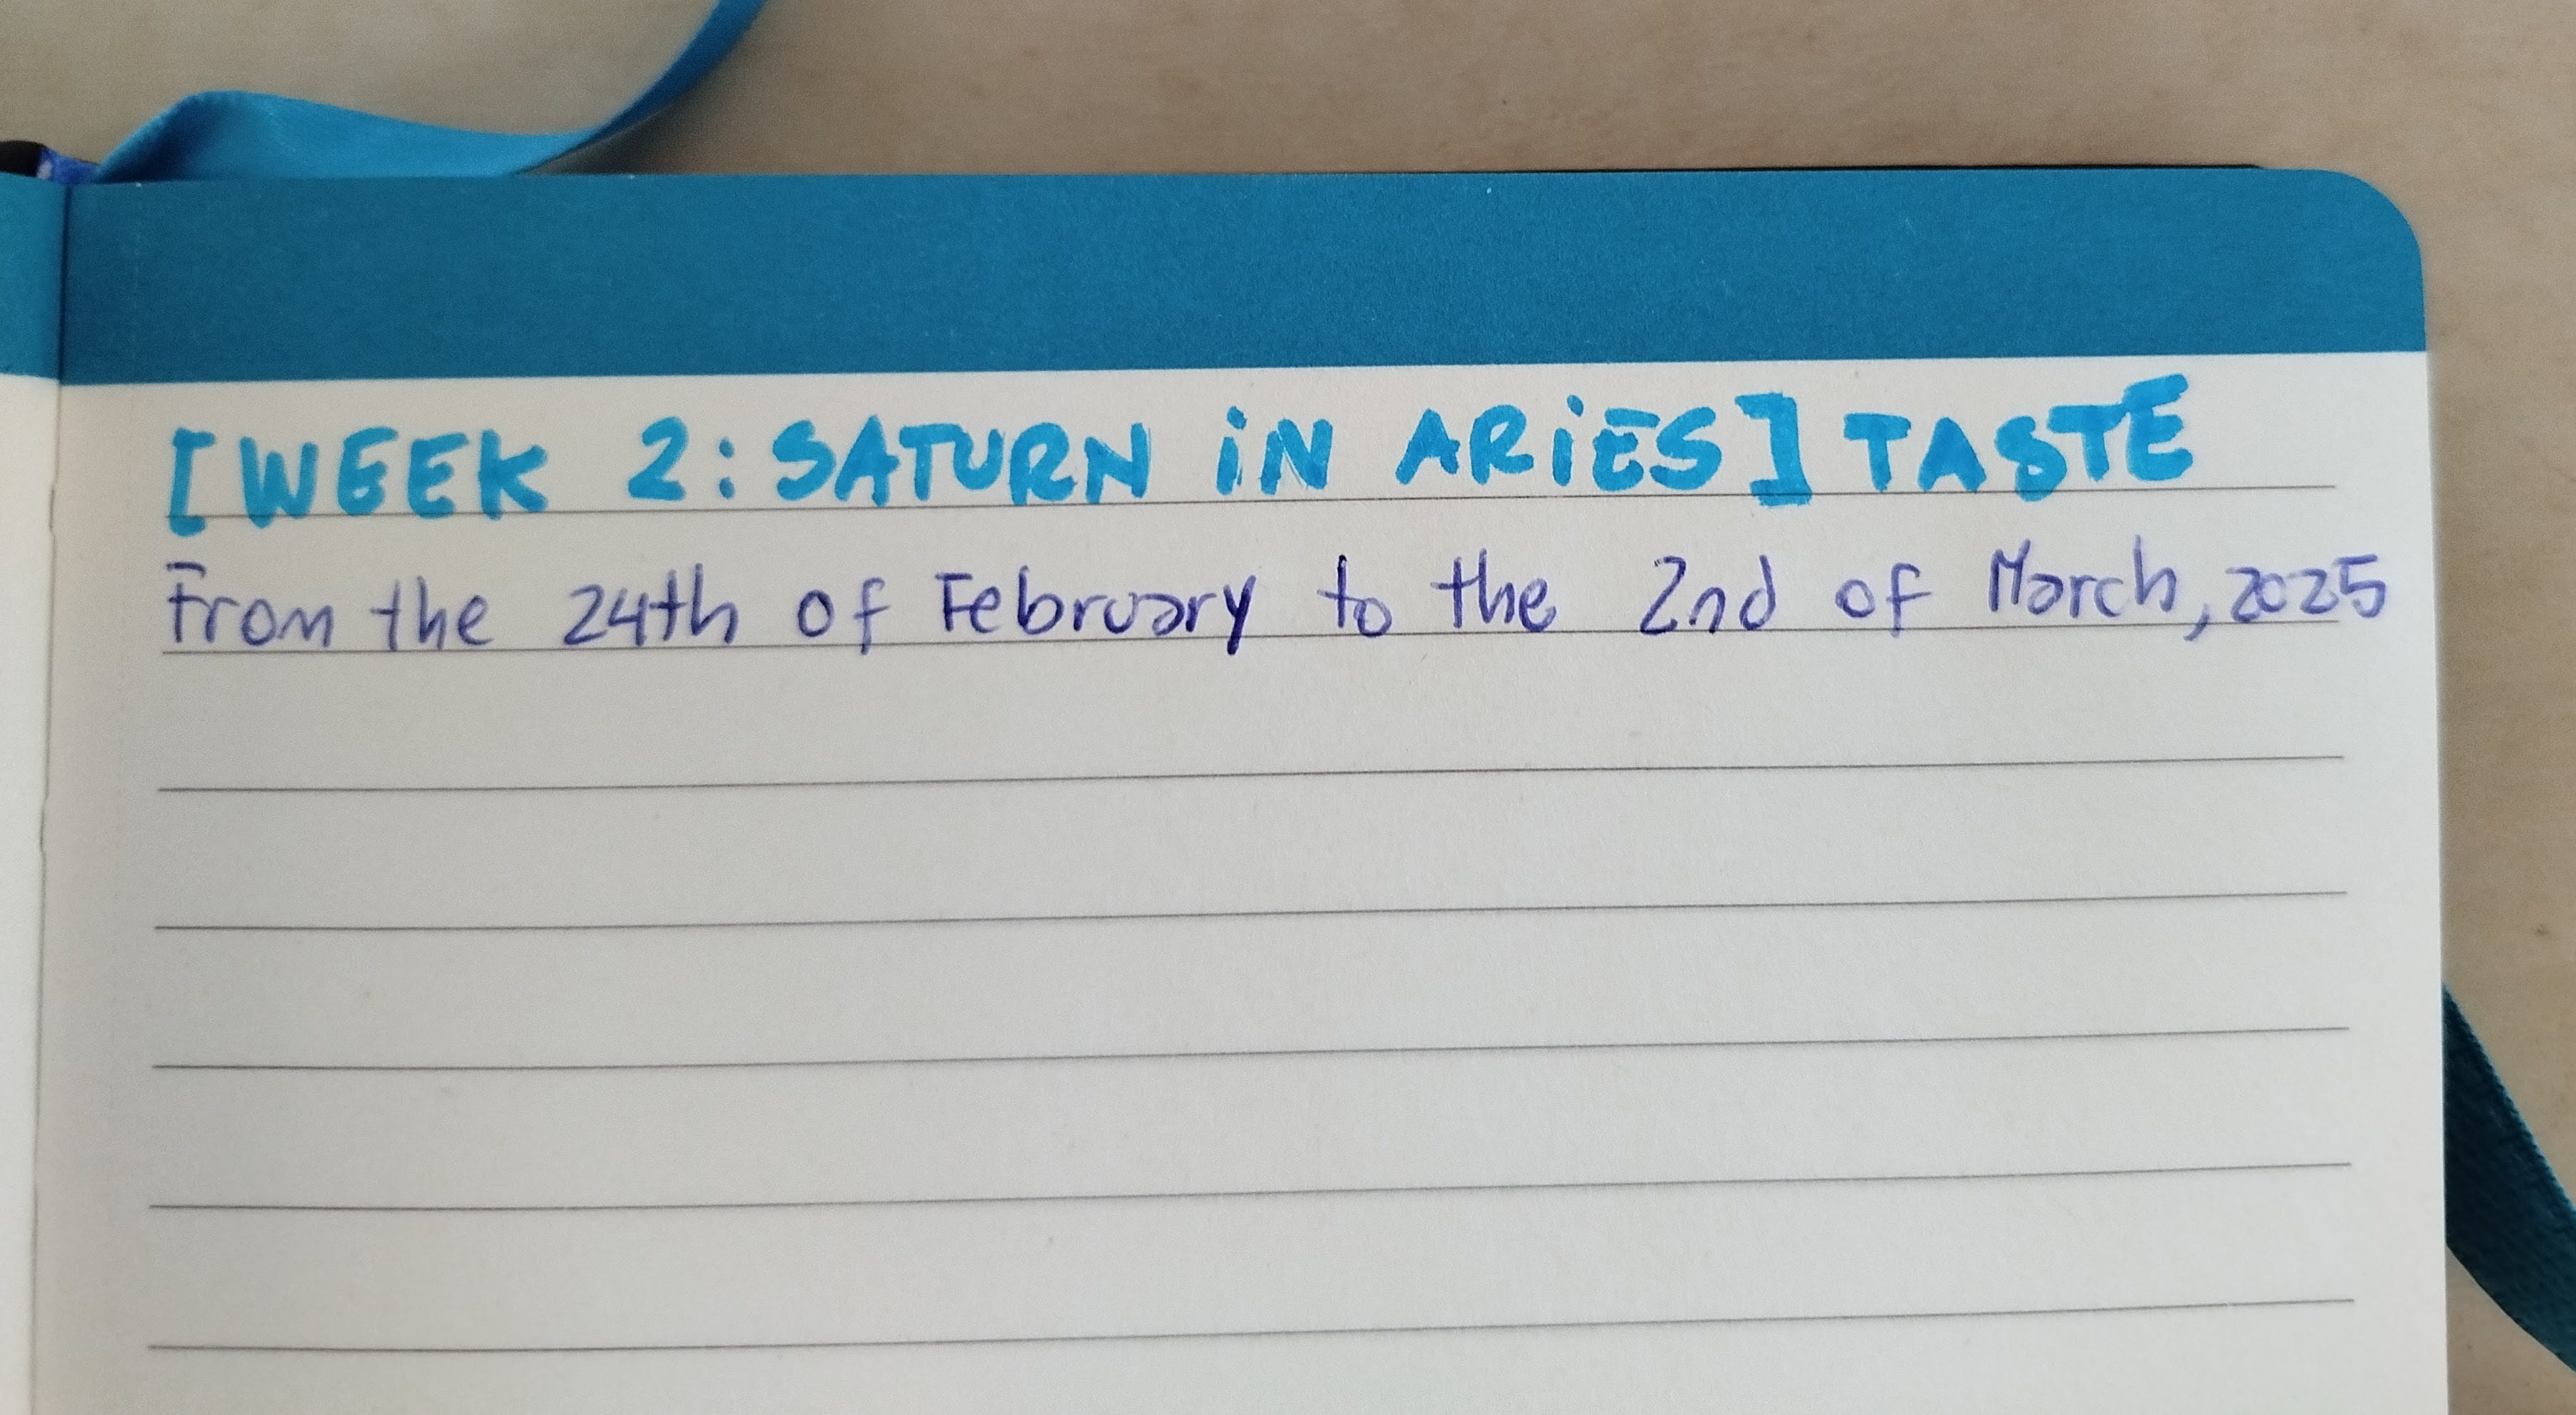 [WEEK 2: SATURN iN ARiES] TASTE
From the 24th of February to the 2nd of March, 2025